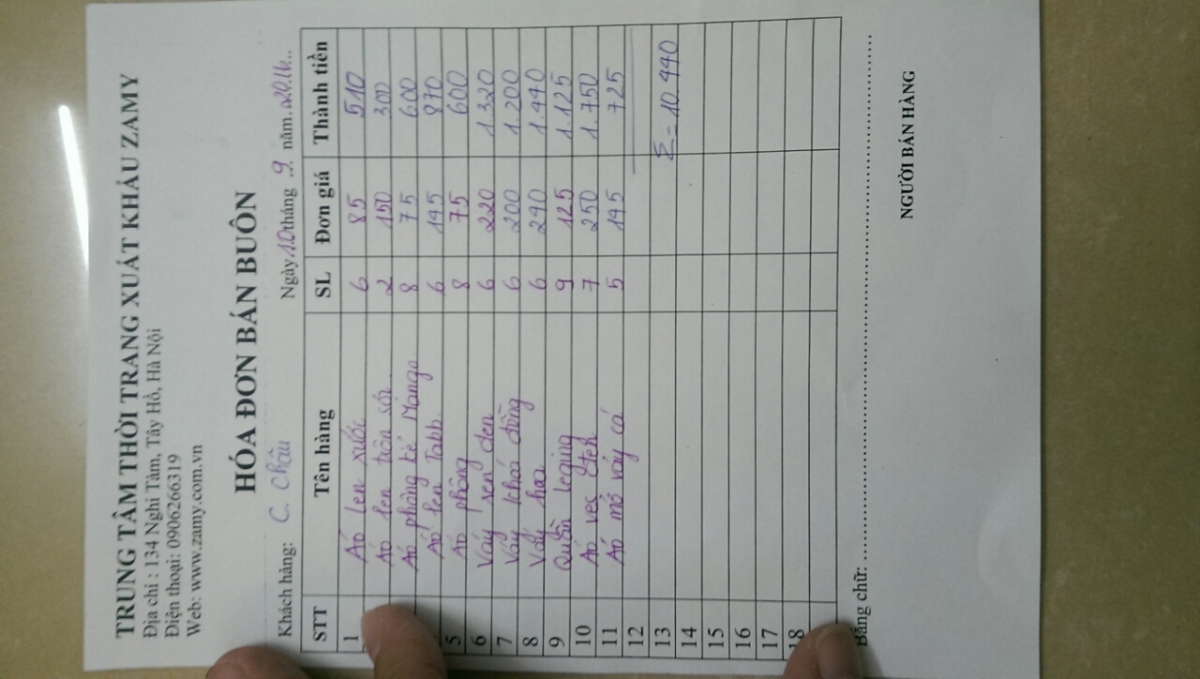 TRUNG TÂM THỜI TRANG XUẤT KHẨU ZAMY
Địa chỉ : 134 Nghi Tàm, Tây Hồ, Hà Nội
Điện thoại: 0906266319
Web: www.zamy.com.vn
HÓA ĐƠN BÁN BUÔN
Khách hàng: C. Châu Ngày 10 tháng 9 năm 2016
STT Tên hàng SL Đơn giá Thành tiền
1 Áo len xước 6 85 510
Áo len trần sói 2 150 300
Áo phông kẻ Mango 8 75 600
Áo len Tabb. 6 145 870
5 Áo phông 8 75 600
6 Váy sen đen 6 220 1.320
7 Váy khoá đồng 6 200 1.200
8 Váy hoa 6 240 1.440
9 Quần leging 9 125 1.125
10 Áo vec 7 250 1.750
11 Áo mỏ váy cá 5 145 725
12
13 Σ = 10.440
14
15
16
17
18
Bằng chữ:
NGƯỜI BÁN HÀNG